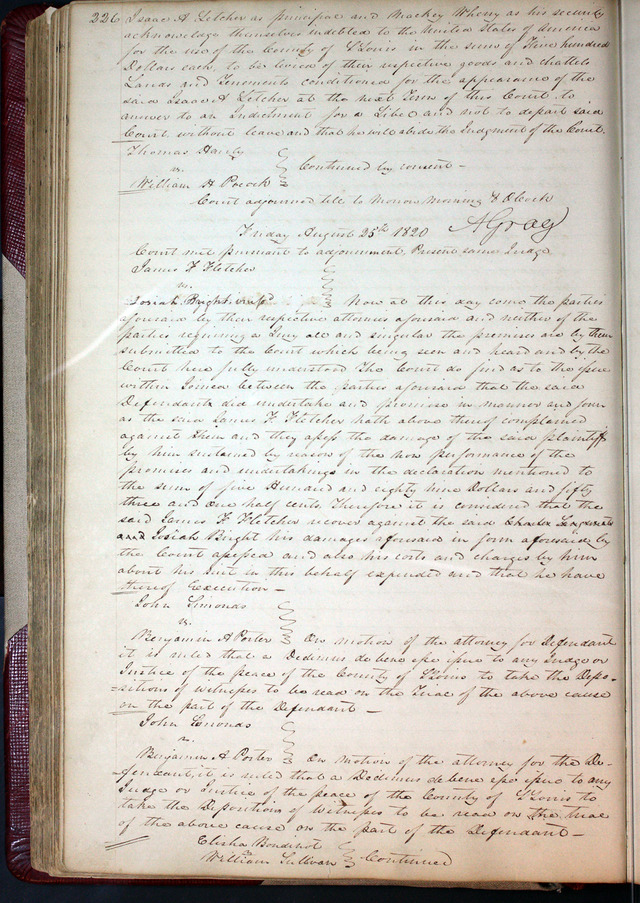 226 Isaac A Letcher as principal and Mackey Wherry as his security
acknowledge themselves indebted to the United States of America
for the use of the County of St Louis in the sum of Five hundred
Dollars each to be levied of their respective goods and chattels
Lands and Tenements conditioned for the appearance of the
said Isaac A Letcher at the next Term of this Court to
answer to an Indictment for a Libel and not to depart said
Court without leave and that he will abide the Judgment of the Court.
Thomas Hanly
vs.
William H Pocock
Continued by consent –
Court adjourned till to Morrow Morning 8 OClock
A Gray
Friday August 25th 1820
Court met pursuant to adjournment Present same Judge
James F Fletcher
vs.
Josiah Bright Now at this day come the parties
aforesaid by their respective attornies aforesaid and neither of the
parties requiring a Jury all and singular the premises are by them
submitted to the Court which being seen and heard and by the
Court here fully understood The Court do find as to the issue
within Joined between the parties aforesaid that the said
Defendants did undertake and promise in manner and form
as the said James F. Fletcher hath above thereof complained
against them and they assess the damage of the said plaintiff
by him sustained by reason of the non performance of the
promises and undertakings in the declaration mentioned to
the sum of five Hundred and eighty nine Dollars and fifty
three and one half cents. Therefore it is considered that the
said James F Fletcher recover against the said
and Josiah Bright his damages aforesaid in form aforesaid by
the Court assessed and also his costs and charges by him
about his suit in this behalf expended and that he have
thereof Execution –
John Simonds
vs.
Benjamin A Porter On motion of the attorney for Defendant
it is ruled that a Dedimus de bene esse issue to any Judge or
Justice of the peace of the County of St Louis to take the Depo-
sitions of witnesses to be read on the Trial of the above cause
on the part of the Defendant –
John Emonds
vs.
Benjamin A Porter On motion of the attorney for the De-
fendant it is ruled that a Dedimus de bene esse issue to any
Judge or Justice of the peace of the County of St Louis to
take the Depositions of Witnesses to be read on the Trial
of the above cause on the part of the Defendant –
Elisha Bondinot
vs
William Sullivan Continued